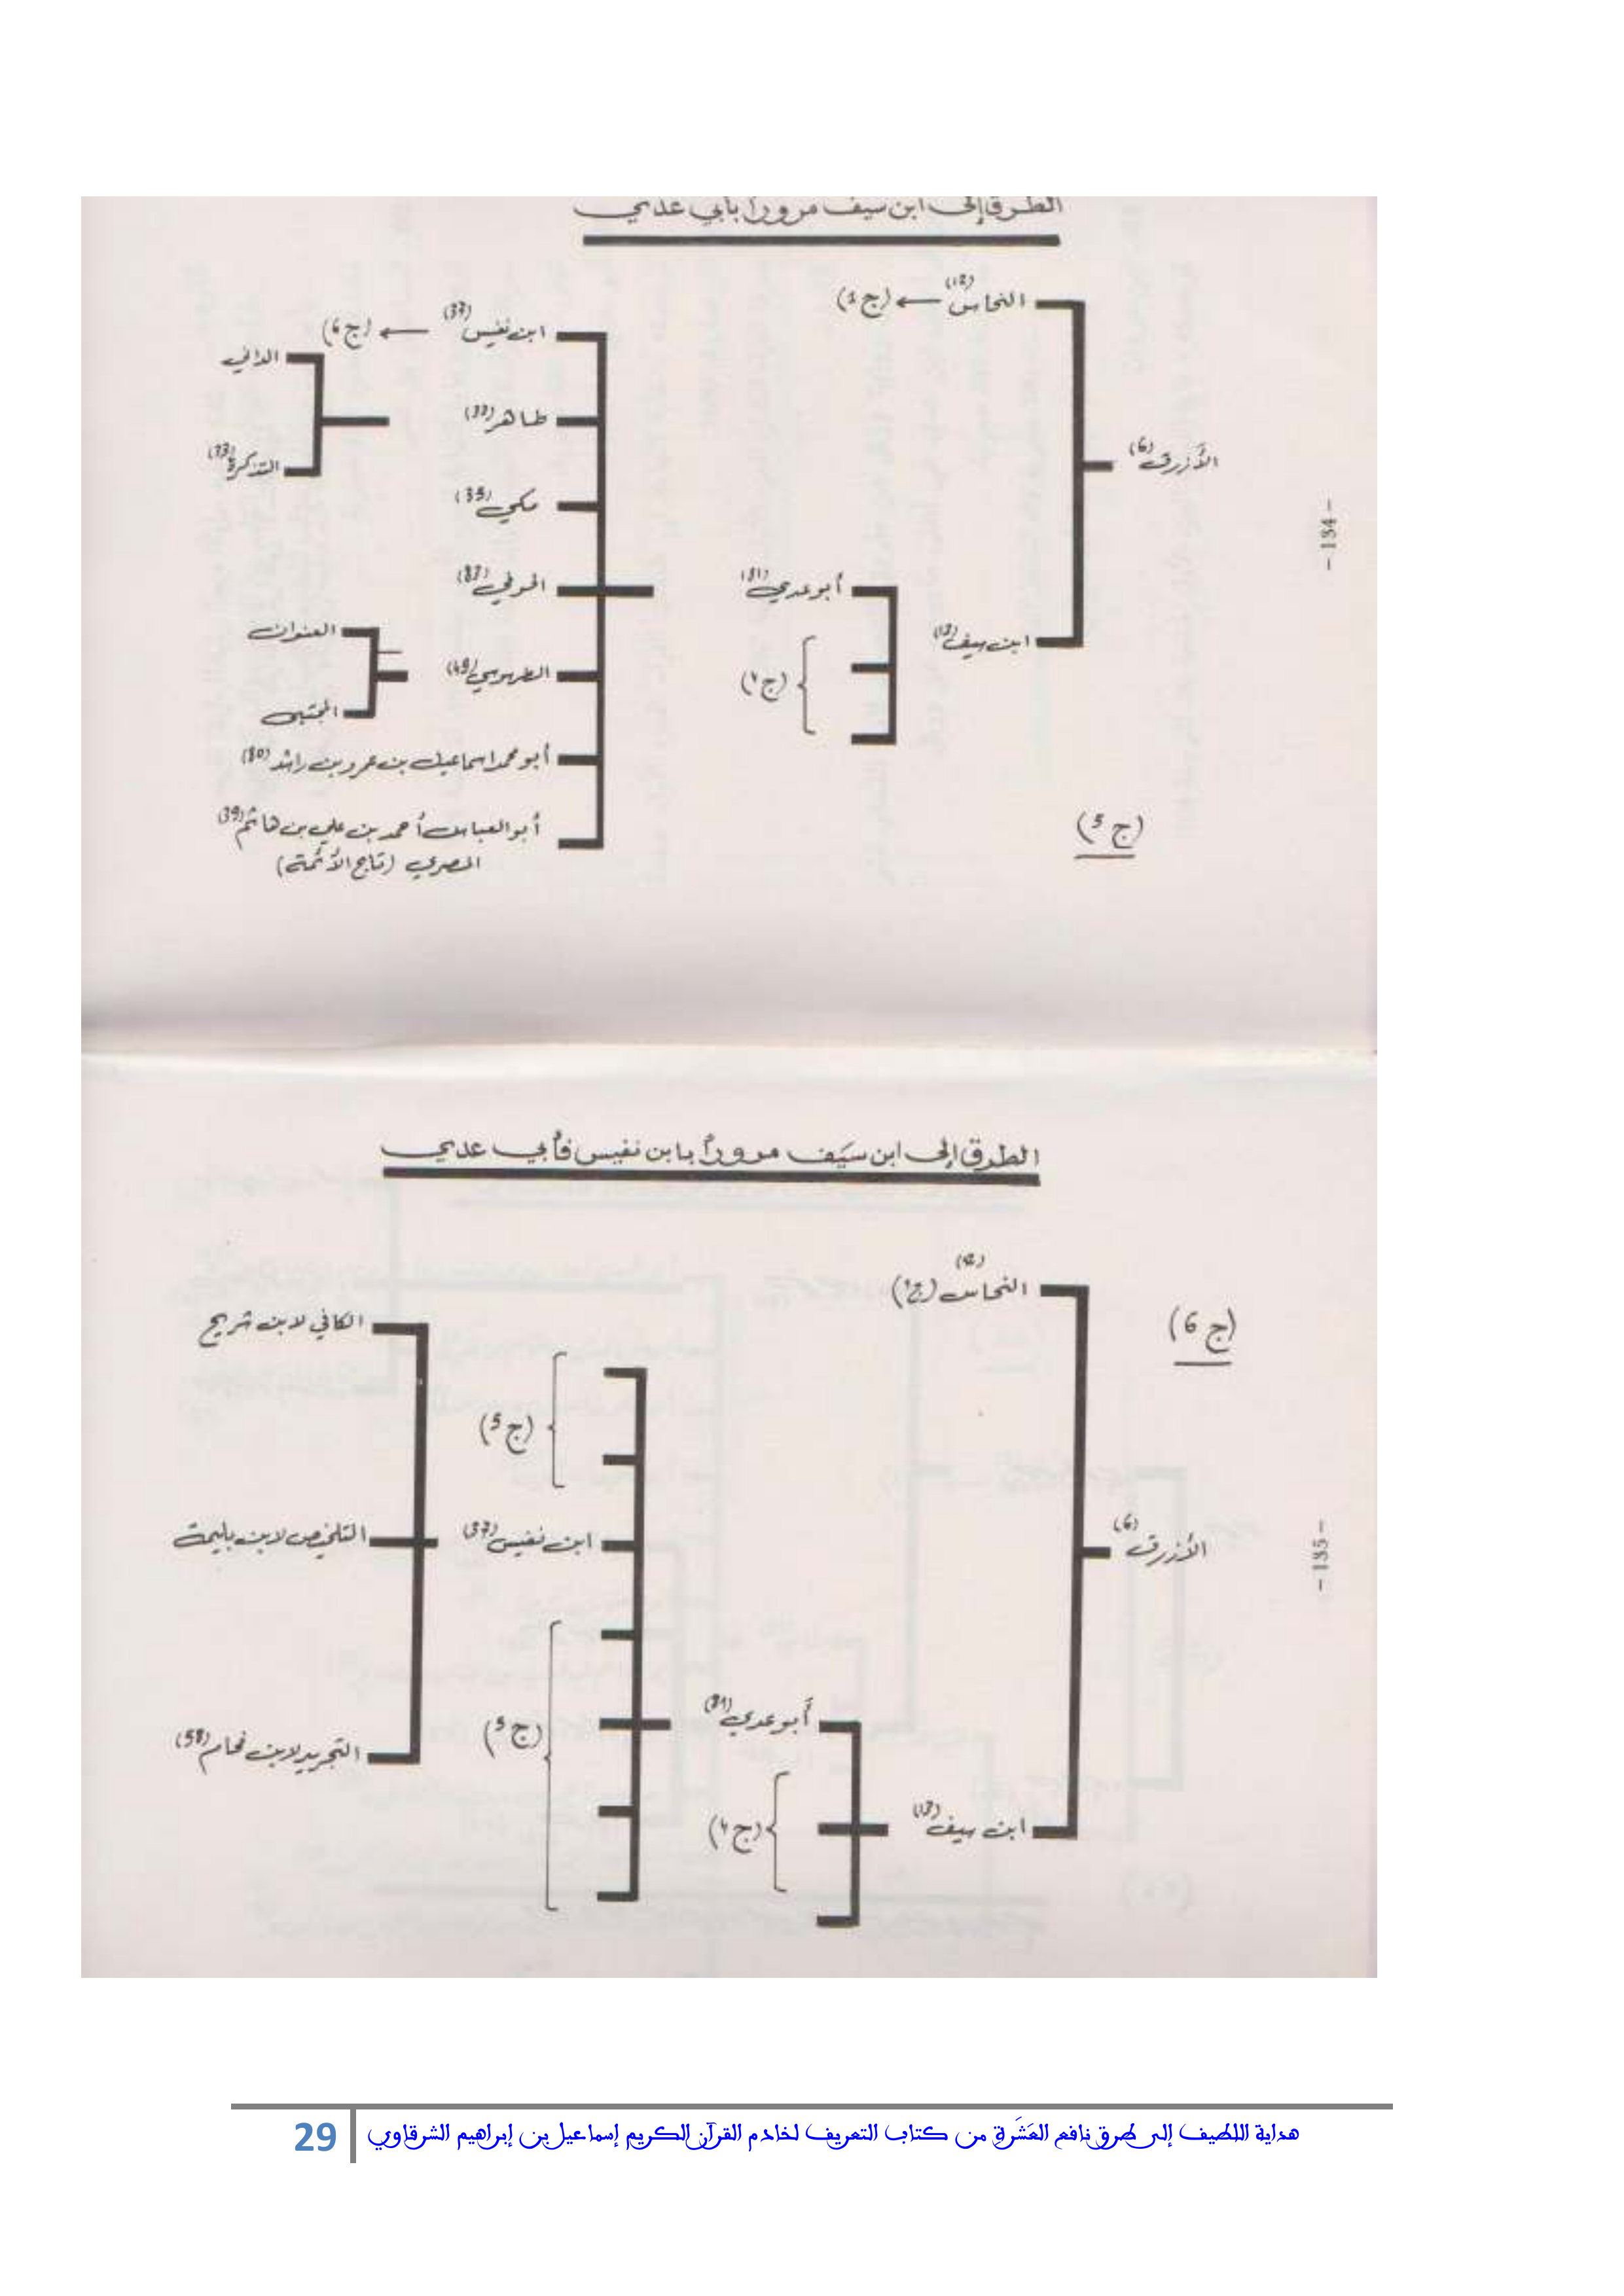 الطرق إلى ابن سيف مروراً بأبي عدي
النحاس (12) ← (ج 1)
الأزرق (6)
ابن سيف (13)
أبو عدي (31)
(ج 1)
(ج 5)
ابن نفيس (37) ← (ج 6)
طاهر (33)
الداني
التذكرة (33)
مكي (35)
الحوفي (83)
الطرسوسي (49)
العنوان
المجتبى
أبو محمد اسماعيل بن عمرو بن راشد (80)
أبو العباس أحمد بن علي بن هاشم (39)
المصري (تاج الأئمة)
- 134 -
الطرق إلى ابن سيَف مروراً بابن نفيس فأبي عدي
(ج 6)
النحاس (12) (ج 1)
الأزرق (6)
ابن سيف (13)
أبو عدي (31)
(ج 1)
(ج 5)
ابن نفيس (37)
(ج 5)
الكافي لابن شريح
التلخيص لابن بليمة
التجريد لابن فحام (58)
- 135 -
هداية اللطيف إلى طرق نافع العَشَرة من كتاب التعريف لخادم القرآن الكريم إسماعيل بن إبراهيم الشرقاوي
29